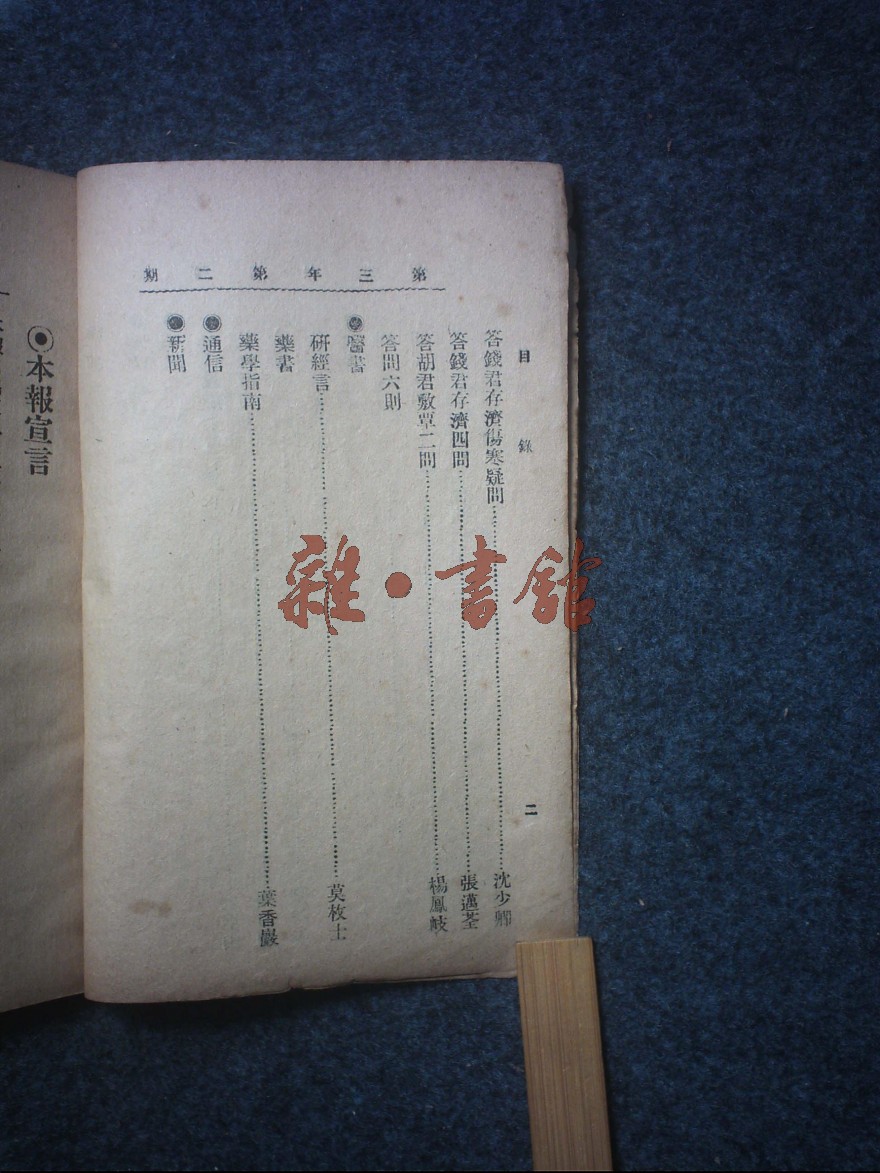 第三年第二期
目錄
二
答錢君存濟傷寒疑問……沈少卿
答錢君存濟四問……張邁荃
答胡君敷覃二問……楊鳳岐
答問六則
醫書
研經言……莫枚士
藥書
藥學指南……葉香巖
通信
新聞
本報宣言
雜·書館